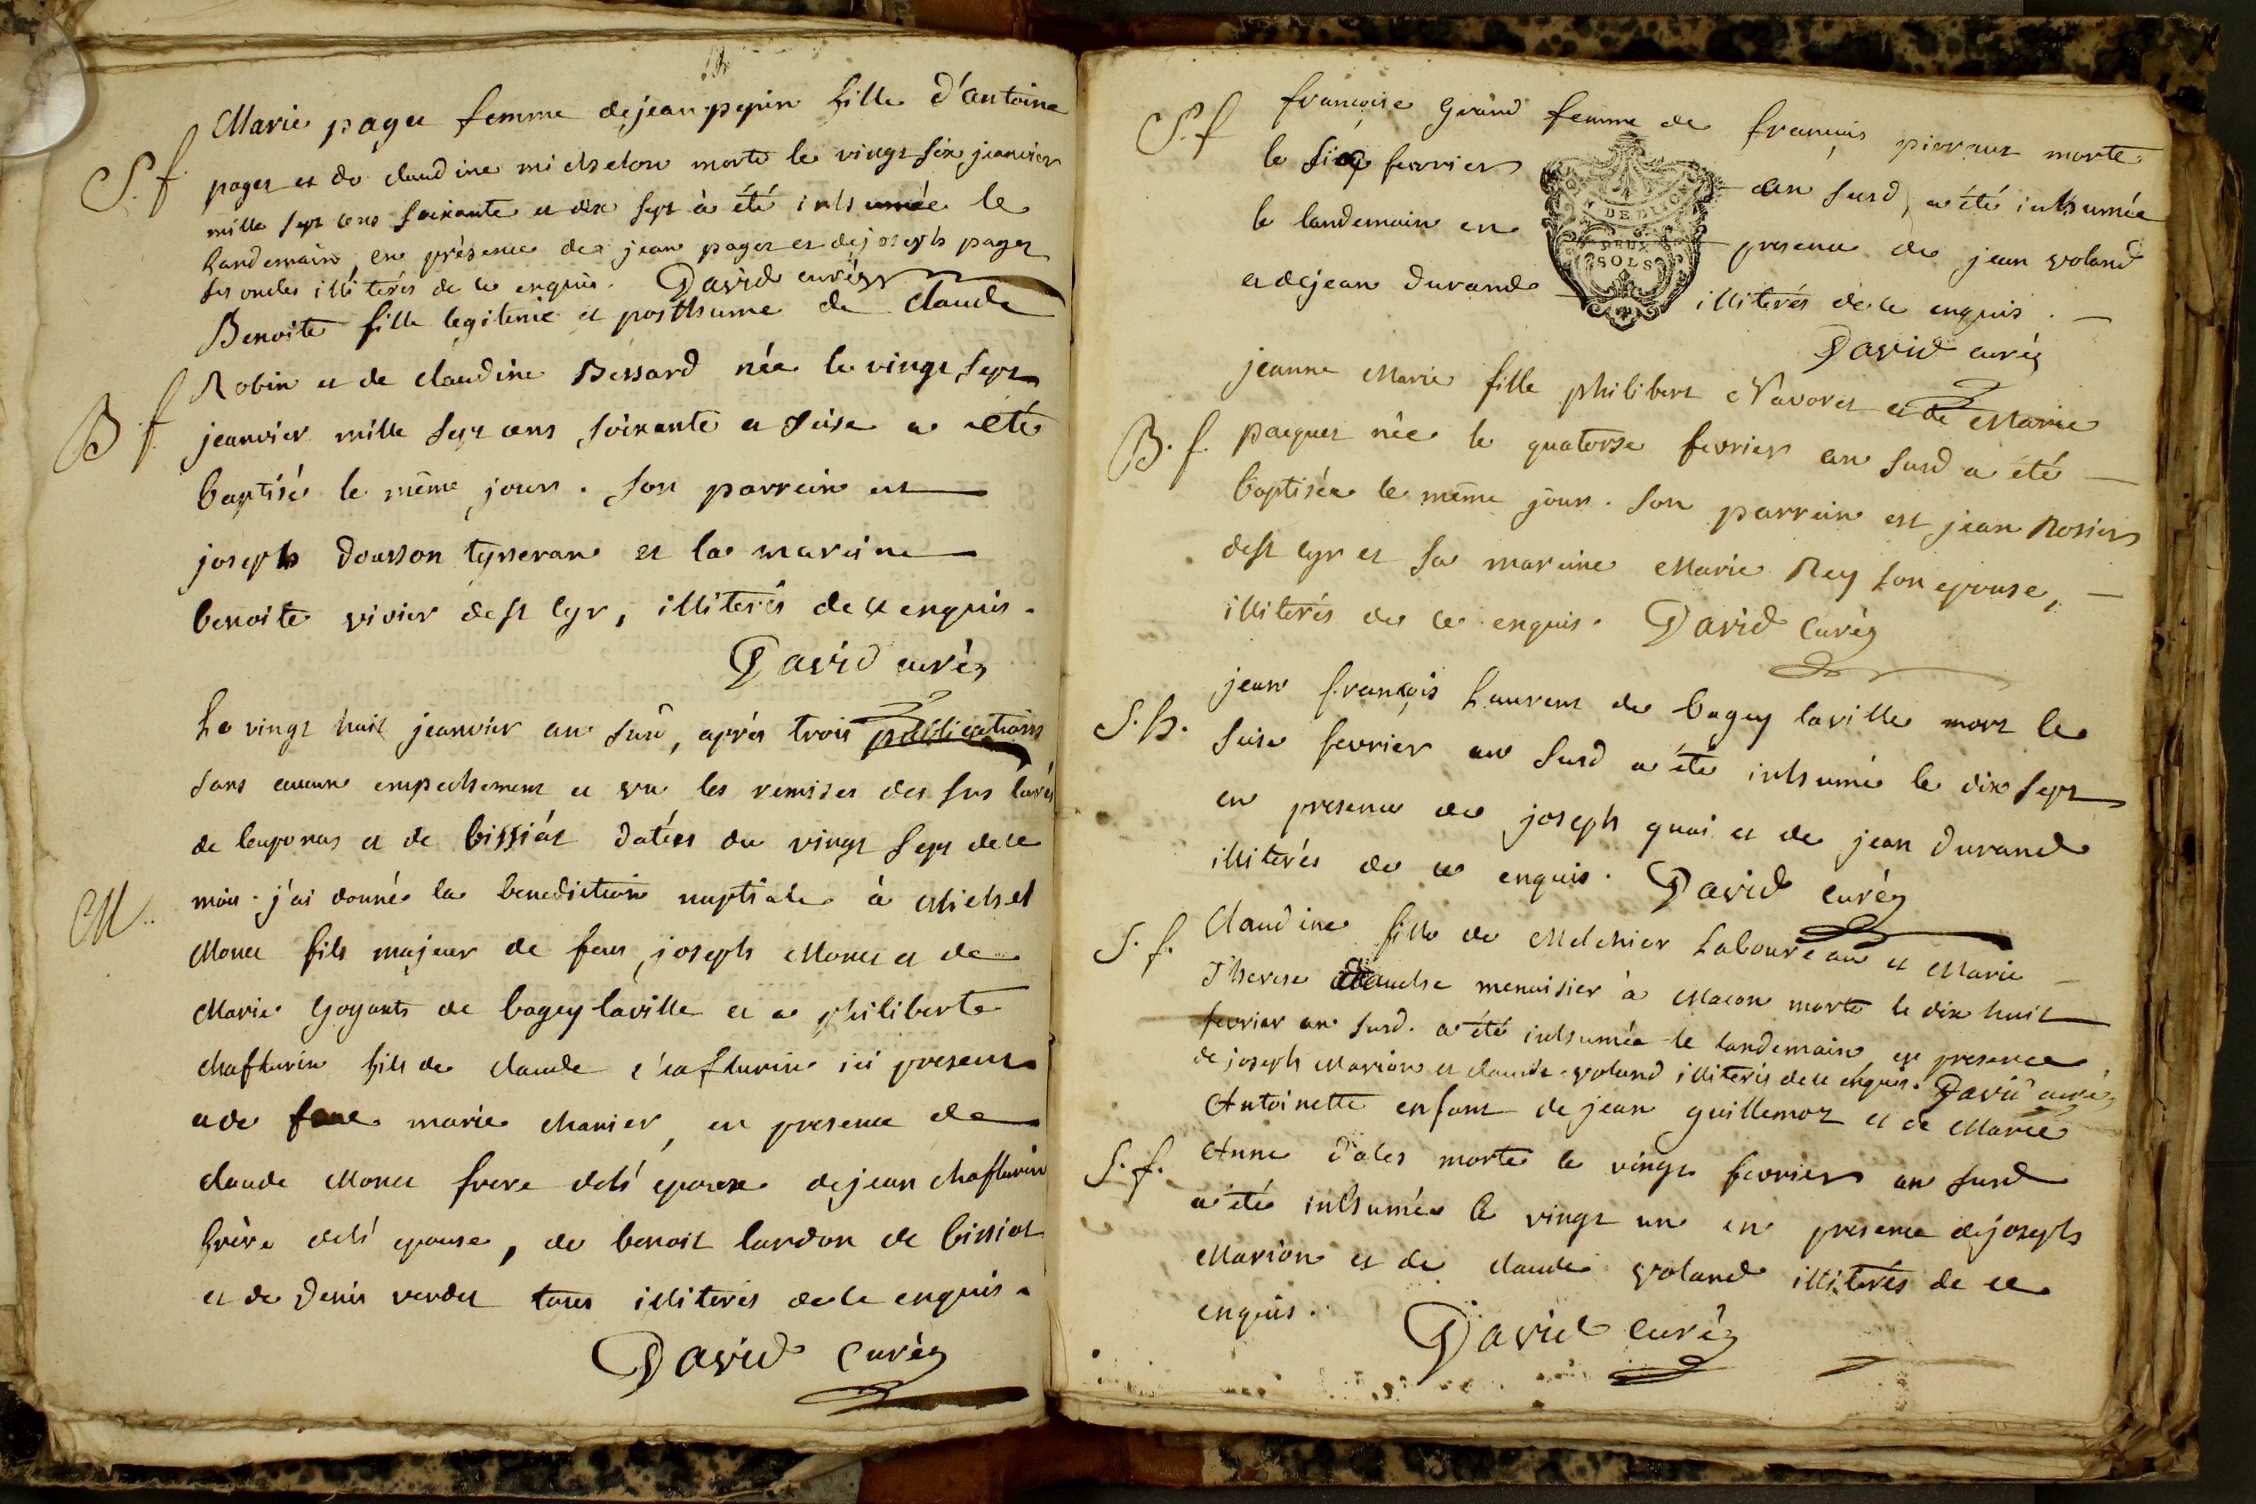 Marie pager femme dejean pepin fille d'antoine
S. f. pager et de claudine michelon morte le vingt six jeanvier
mille sept cens soixante et dix sept à été inhumée le
landemain, en présence de jean pager et dejoseph pager
ses oncles illiterés de ce enquis. David curéz
Benoite fille legitime et posthume de claude
B. f. Robin et de claudine Bessard née le vingt sept
jeanvier mille sept cens soixante et seise a été
baptisée le même jour. son parrein est
joseph dousson tysseran et la mareine
benoite vivier de st cyr, illiterés de ce enquis.
David curéz
Le vingt huit jeanvier an susd, aprés trois publications
sans aucun empechement et vu les remises des srs curés
de leyponas et de bissiat datées du vingt sept de ce
M. mois. j'ai donné la benediction nuptiale à Michel
Monet fils majeur de feu joseph Monet et de
Marie Goyants de bagey laville et a philiberte
chaffurin fille de claude chaffurin ici present
et de feue marie chanier, en presence de
claude Monet frere del'époux dejean chaffurin
frère del'épouse, de benoit lardon de bissiat
et de denis verdet tous illiterés de ce enquis.
David Curéz
S. f. francoise Grand femme de francois pierraut morte
le février an susd, a été inhumée
le landemain en presence de jean voland
et dejean durand illiterés de ce enquis.
DEUX
SOLS
David curéz
jeanne Marie fille philibert Navoret et de Marie
B. f. pacquet née le quatorse fevrier an susd a été
baptisée le même jour. son parrein est jean Rosier
de st cyr et sa mareine Marie Rey son epouse,
illiterés de ce enquis. David Curéz
jean françois Laurent de bagey laville mort le
S. h. seise fevrier an susd a été inhumé le dix sept
en presence de joseph quai et de jean durand
illiterés de ce enquis. David curéz
S. f. Claudine fille de Melchier Laboureau et Marie
Therese menuisier à Macon morte le dix huit
fevrier an susd. a été inhumée le landemain en presence
de joseph Marion et claude voland illiterés de ce enquis. David curéz
Antoinette enfant de jean guillemot et de Marie
S. f. Anne dales morte le vingt fevrier an susd
a été inhumée le vingt un en presence dejoseph
Marion et de claude voland illiterés de ce
enquis. David curéz